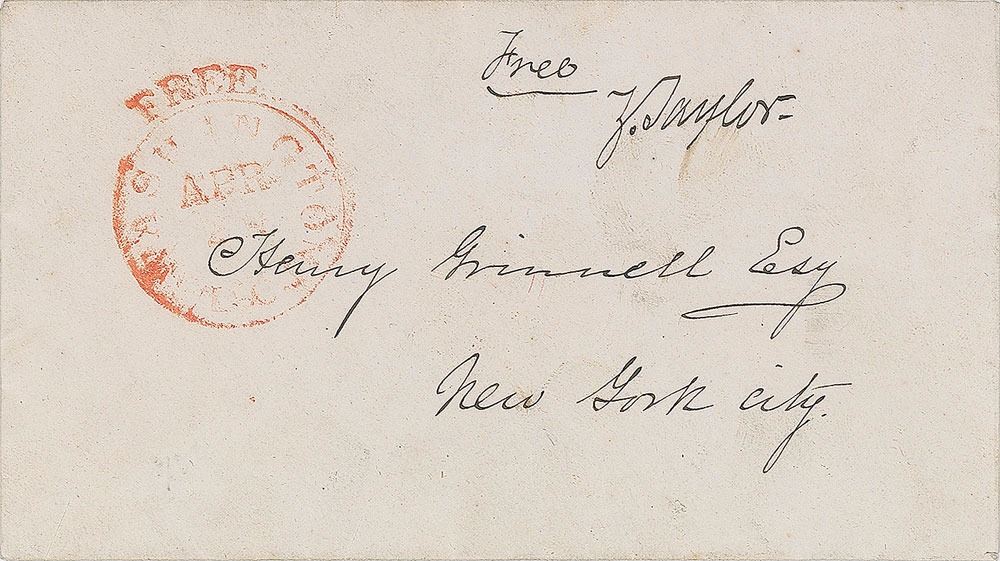 Free
Z. Taylor-
FREE
WASHINGTON D.C.
APR
Henry Grinnell Esq
New York city.